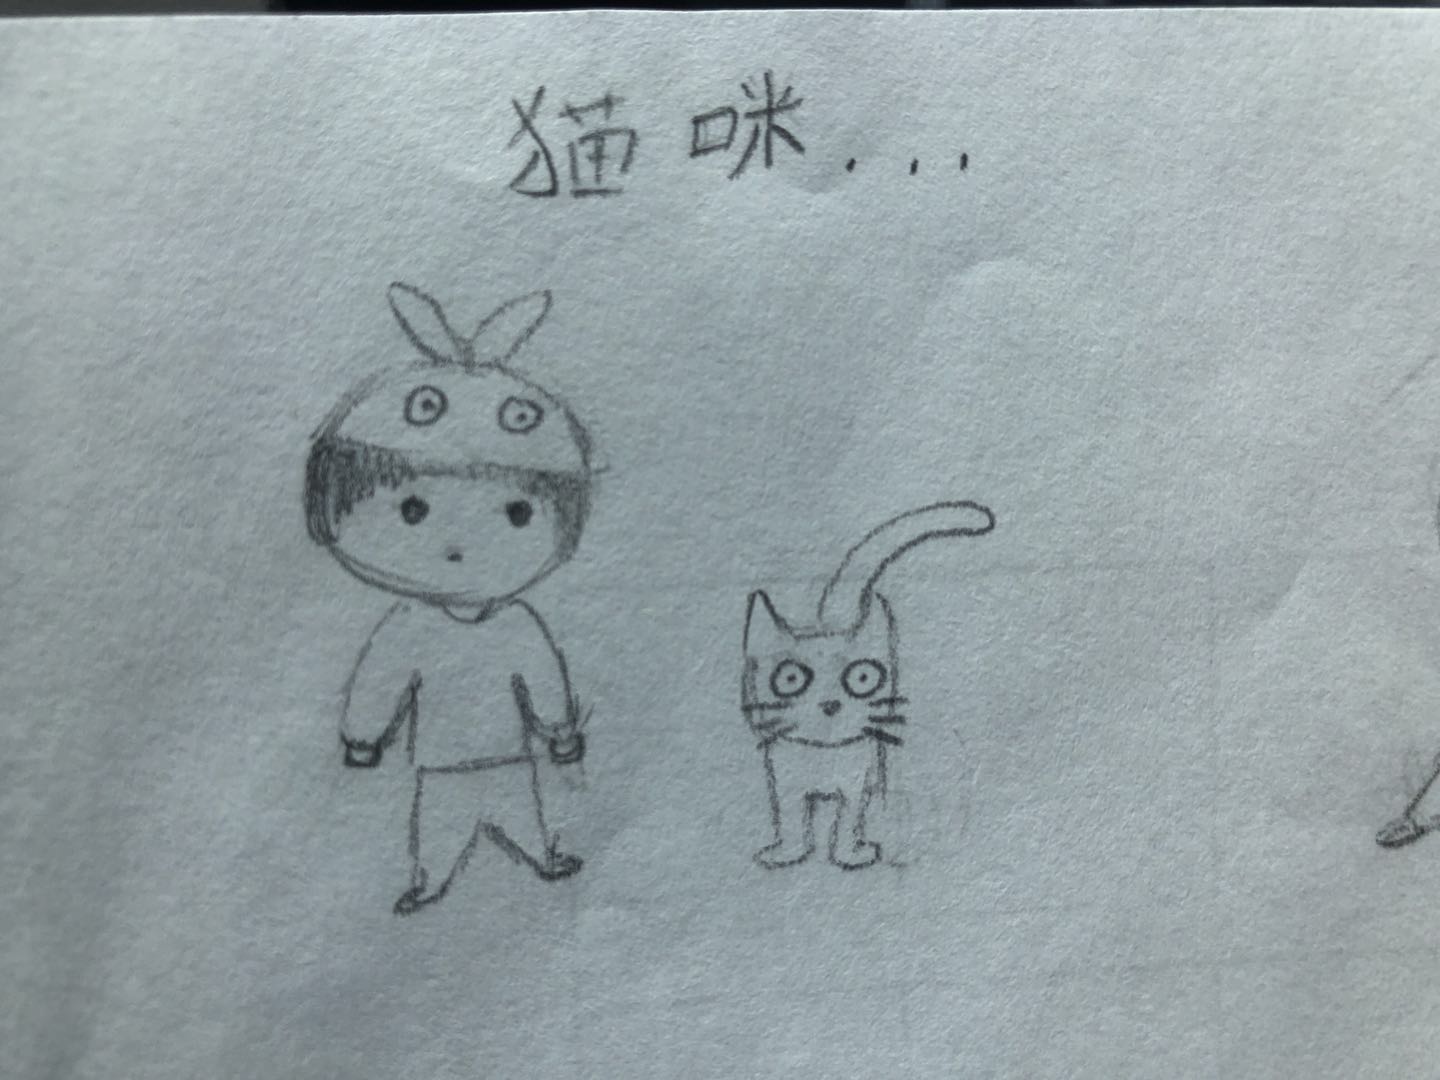 猫咪...